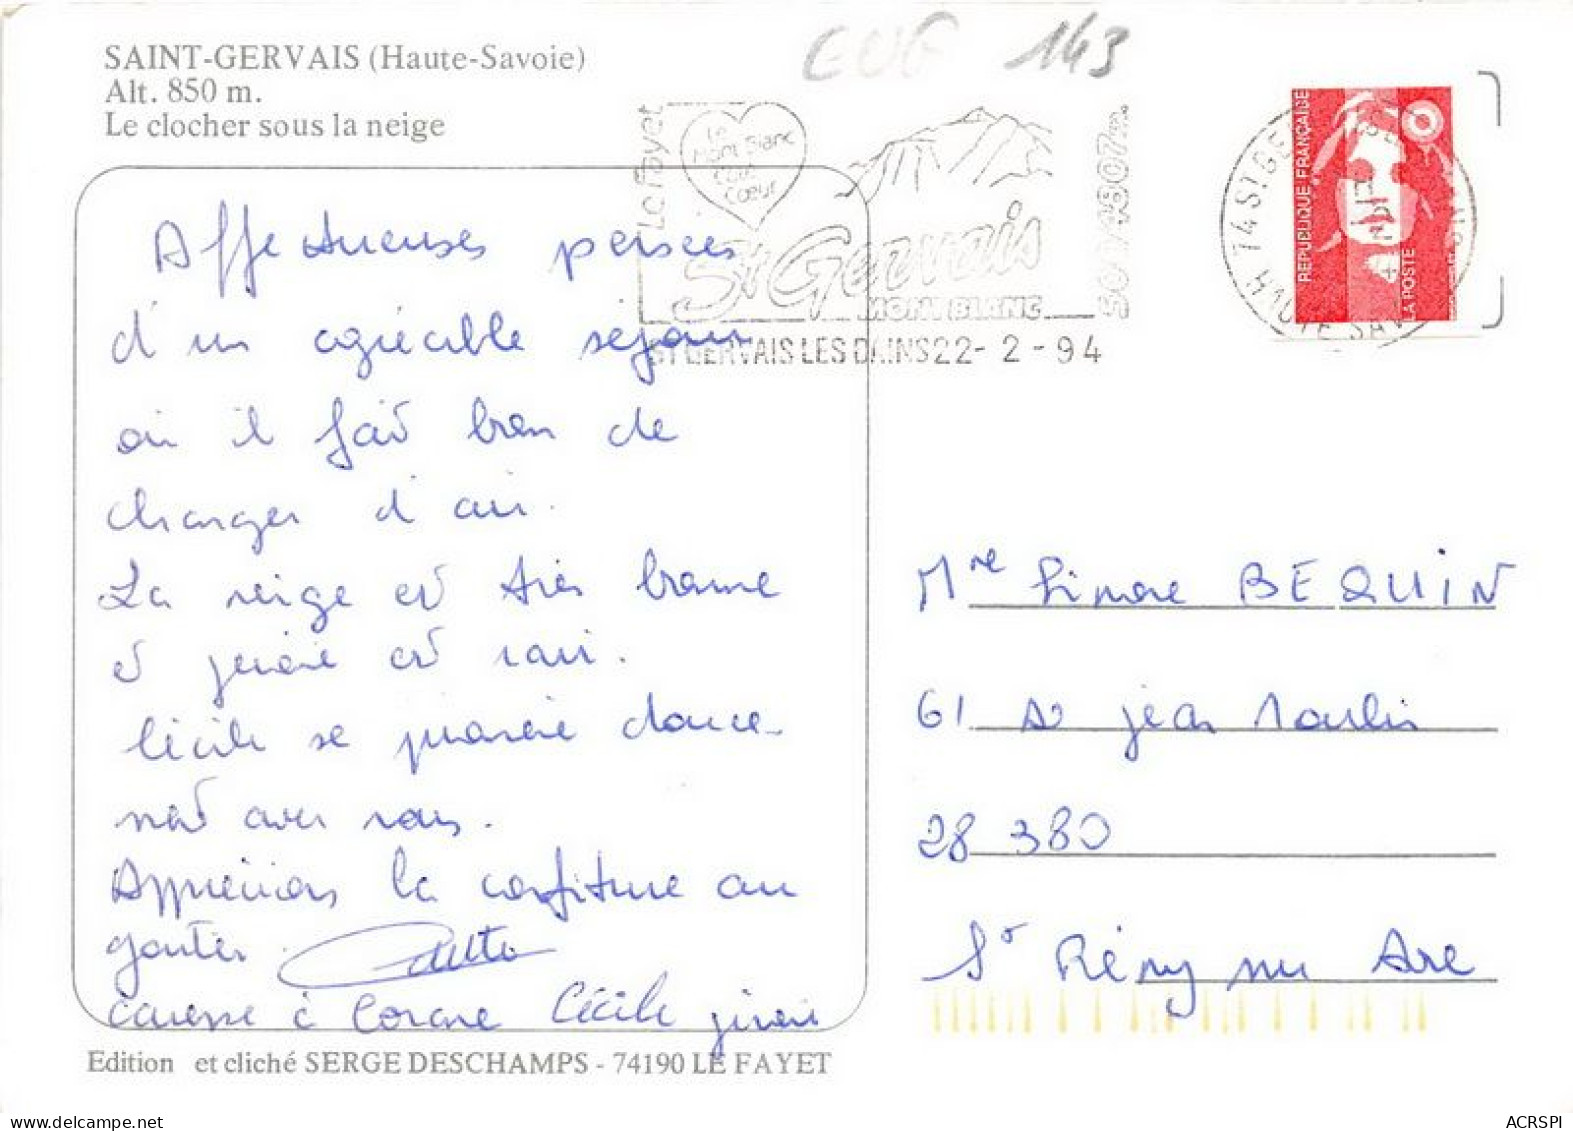 SAINT-GERVAIS (Haute-Savoie)
Alt. 850 m.
Le clocher sous la neige
EUG 143
Le Fayet
Le
Mont Blanc
Côté
Cœur
St Gervais
MONT BLANC
4807m
ST GERVAIS LES BAINS 22-2-94
REPUBLIQUE FRANÇAISE
LA POSTE
74 ST GE
HAUTE SAV
Affectueuses pensées
d'un agréable séjour
où il fait bon de
changer d'air.
La neige est très bonne
et est ravi.
Cécile se promène douce-
ment avec nous.
Apprécions la confiture au
goûter.
caresse à Cécile
Mme Simone BEQUIN
61 Jean Moulin
28 380
St Rémy sur Avre
Edition et cliché SERGE DESCHAMPS - 74190 LE FAYET
ACRSPI